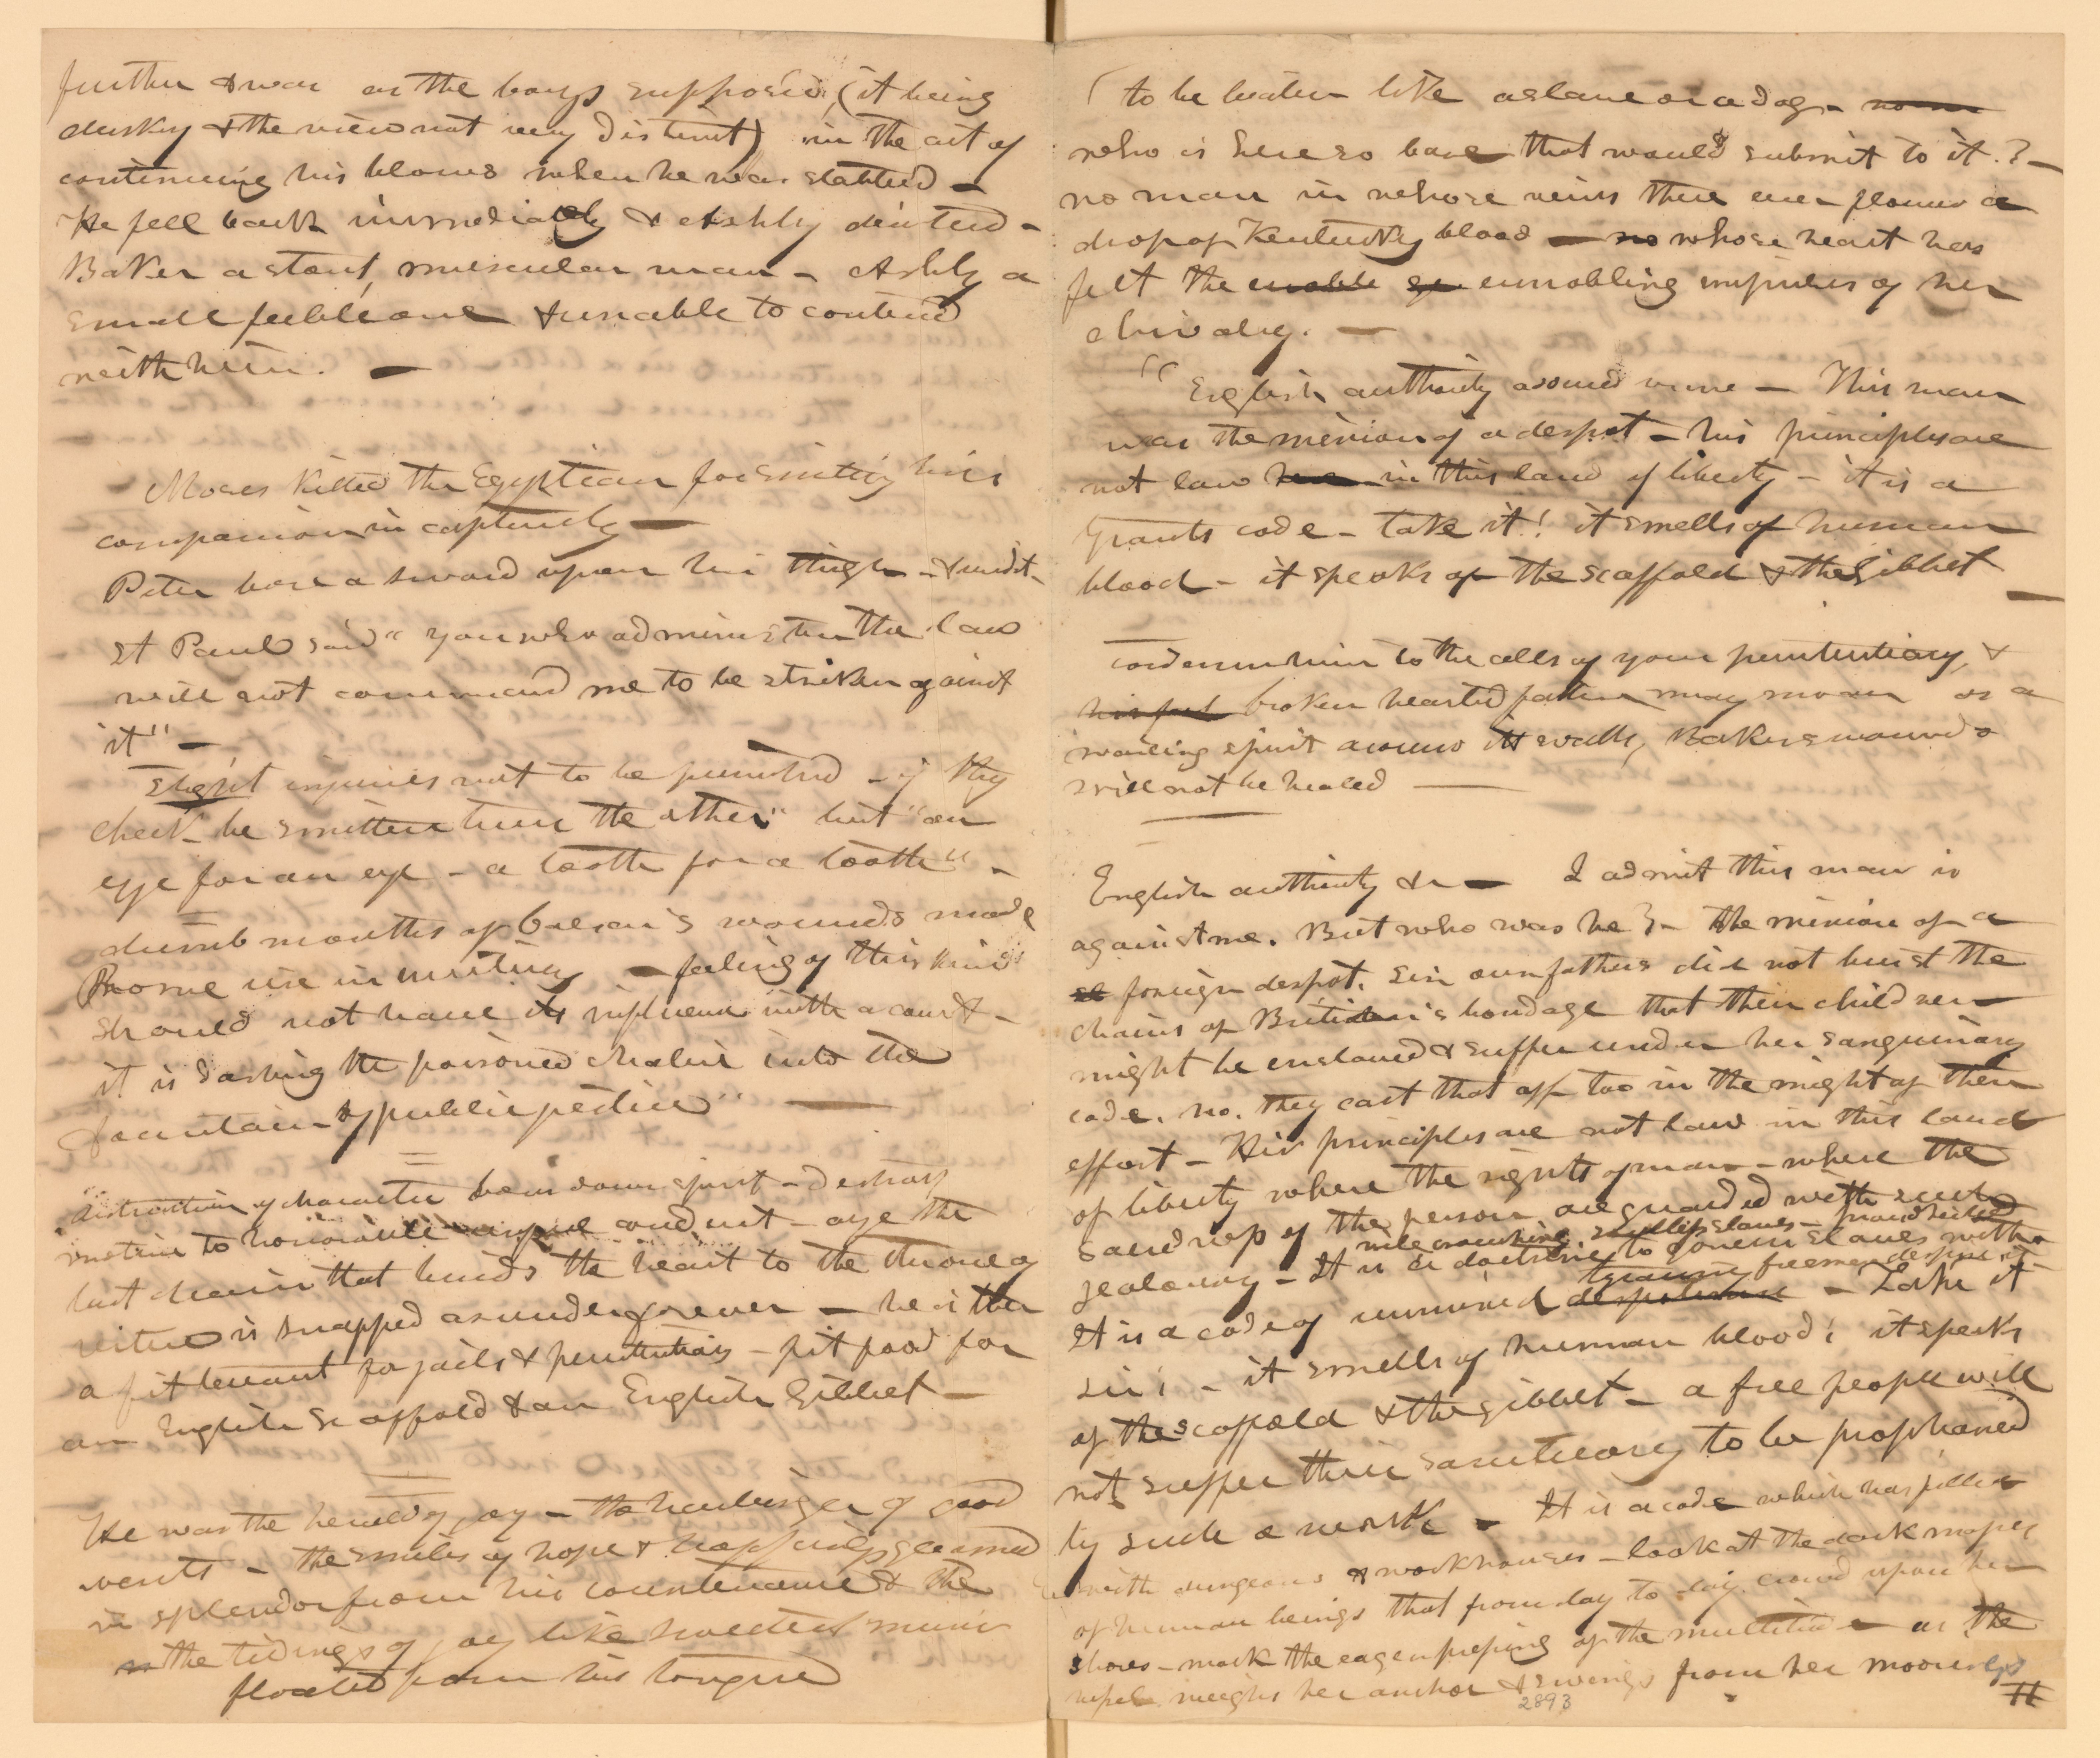 further & was as the boys supposed, (it being
dusky & the view not very distinct) in the act of
continuing his blows when he was stabbed —
He fell back immediately & Ashby desisted —
Baker a stout, muscular man — Ashby a
small feeble one & unable to contend
with him. —
Moses killed the Egyptian for smiting his
companion in captivity —
Peter bore a sword upon his thigh —
St Paul said "you who administer the law
will not command me to be striken against
it" —
Slight injuries not to be punished — if thy
cheek be smitten turn the other" but "an
eye for an eye — a tooth for a tooth" —
dumb mouths of Caesar's wounds made
Rome rise in mutiny — feeling of this kind
should not have its influence with a court —
it is dashing the poisoned chalice into the
fountain of public justice" —
destruction of character bears down spirit — destroys
motive to honorable conduct — aye the
last chain that binds the heart to the throne of
virtue is snapped asunder forever — he is then
a fit tenant for jails & penitentiary — fit food for
an English scaffold & an English Gibbet —
He was the herald of joy — the harbinger of good
events — the smiles of hope & happiness gleamed
in splendor from his countenance & the
the tidings of joy like sweetest music
floated from his tongue
"to be beaten like a slave or a dog — no man
who is here so base that would submit to it.? —
no man in whose veins there ever flowed a
drop of Kentucky blood — no whose heart has
felt the enoble ennobling impulses of her
chivalry. —
"English authority around mine — This man
was the minion of a despot — his principles are
not law here in this land of liberty — it is a
tyrants code — take it! it smells of human
blood — it speaks of the scaffold & the Gibbet —
condemn him to the cells of your penitentiary, &
his broken hearted father may moan as a
wailing spirit around its walls, Bakers wounds
will not be healed —
English authority &c — I admit this man is
against me. But who was he? — the minion of a
foreign despot. Sir our fathers did not burst the
chains of Britain's bondage that their children
might be enslaved & suffer under her sanguinary
code. no. they cast that off too in the might of their
effort — His principles are not law in this land
of liberty where the rights of man — where the
sacredness of the person are guarded with such
vile crouching slaves — proud hearted
jealousy — It is a doctrine to govern slaves with
tyranny freemen despise it —
It is a code of despotism — Take it
sir! — it smells of human blood! it speaks
of the scaffold & the gibbet — a free people will
not suffer their sanctuary to be prophaned
by such a work — It is a code which has filled
with dungeons & workhouses — look at the dark masses
of human beings that from day to day crowd upon her
shores — mark the eager of the multitude as the
vessel weighs her anchor & swings from her moorings
2893